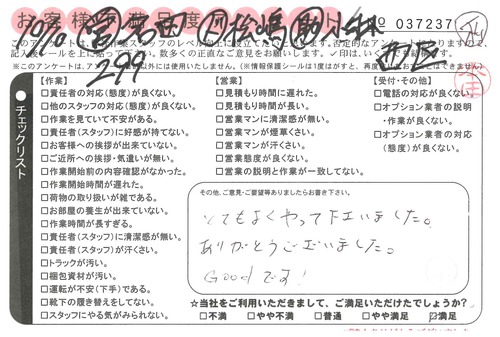 037237
このアンケートは、
記入後シールを上に貼ってください。数多くの正直なご意見をお願いします。
※このアンケートは、
以外には使用いたしません。(※情報保護シールは1度はがすと、再度
チェックリスト
【作業】
□責任者の対応(態度)が良くない。
□他のスタッフの対応(態度)が良くない。
□作業を見ていて不安がある。
□責任者(スタッフ)に好感が持てない。
□お客様への挨拶が出来ていない。
□ご近所への挨拶・気遣いが無い。
□作業開始前の内容確認がなかった。
□作業開始時間が遅れた。
□荷物の取り扱いが雑である。
□お部屋の養生が出来ていない。
□作業時間が長すぎる。
□責任者(スタッフ)に清潔感が無い。
□責任者(スタッフ)が汗くさい。
□トラックが汚い。
□梱包資材が汚い。
□運転が不安(下手)である。
□靴下の履き替えをしてない。
□スタッフにやる気がみられない。
【営業】
□見積もり時間に遅れた。
□見積もり時間が長い。
□営業マンに清潔感が無い。
□営業マンが煙草くさい。
□営業マンが汗くさい。
□営業態度が良くない。
□営業の説明と作業が一致してない。
【受付・その他】
□電話の対応が良くない。
□オプション業者の説明
・作業が良くない。
□オプション業者の対応
(態度)が良くない。
その他、ご意見・ご要望等ありましたらお書き下さい。
とてもよくやって下さいました。
ありがとうございました。
Goodです!
☆当社をご利用いただきまして、ご満足いただけたでしょうか?
□不満 □やや不満 □普通 □やや満足 ☑満足